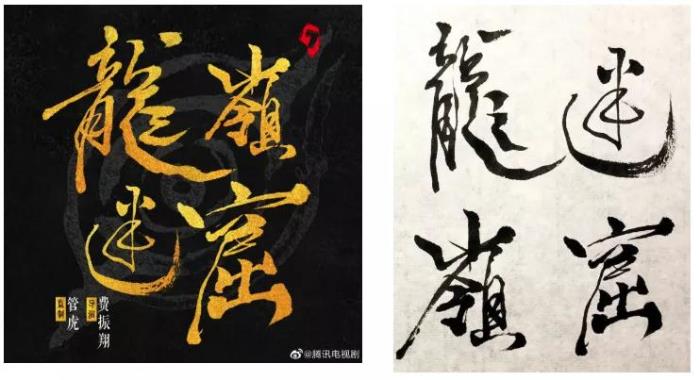 龍嶺
迷窟
監制
管虎
导演
费振翔
@腾讯电视剧
龍迷
嶺窟